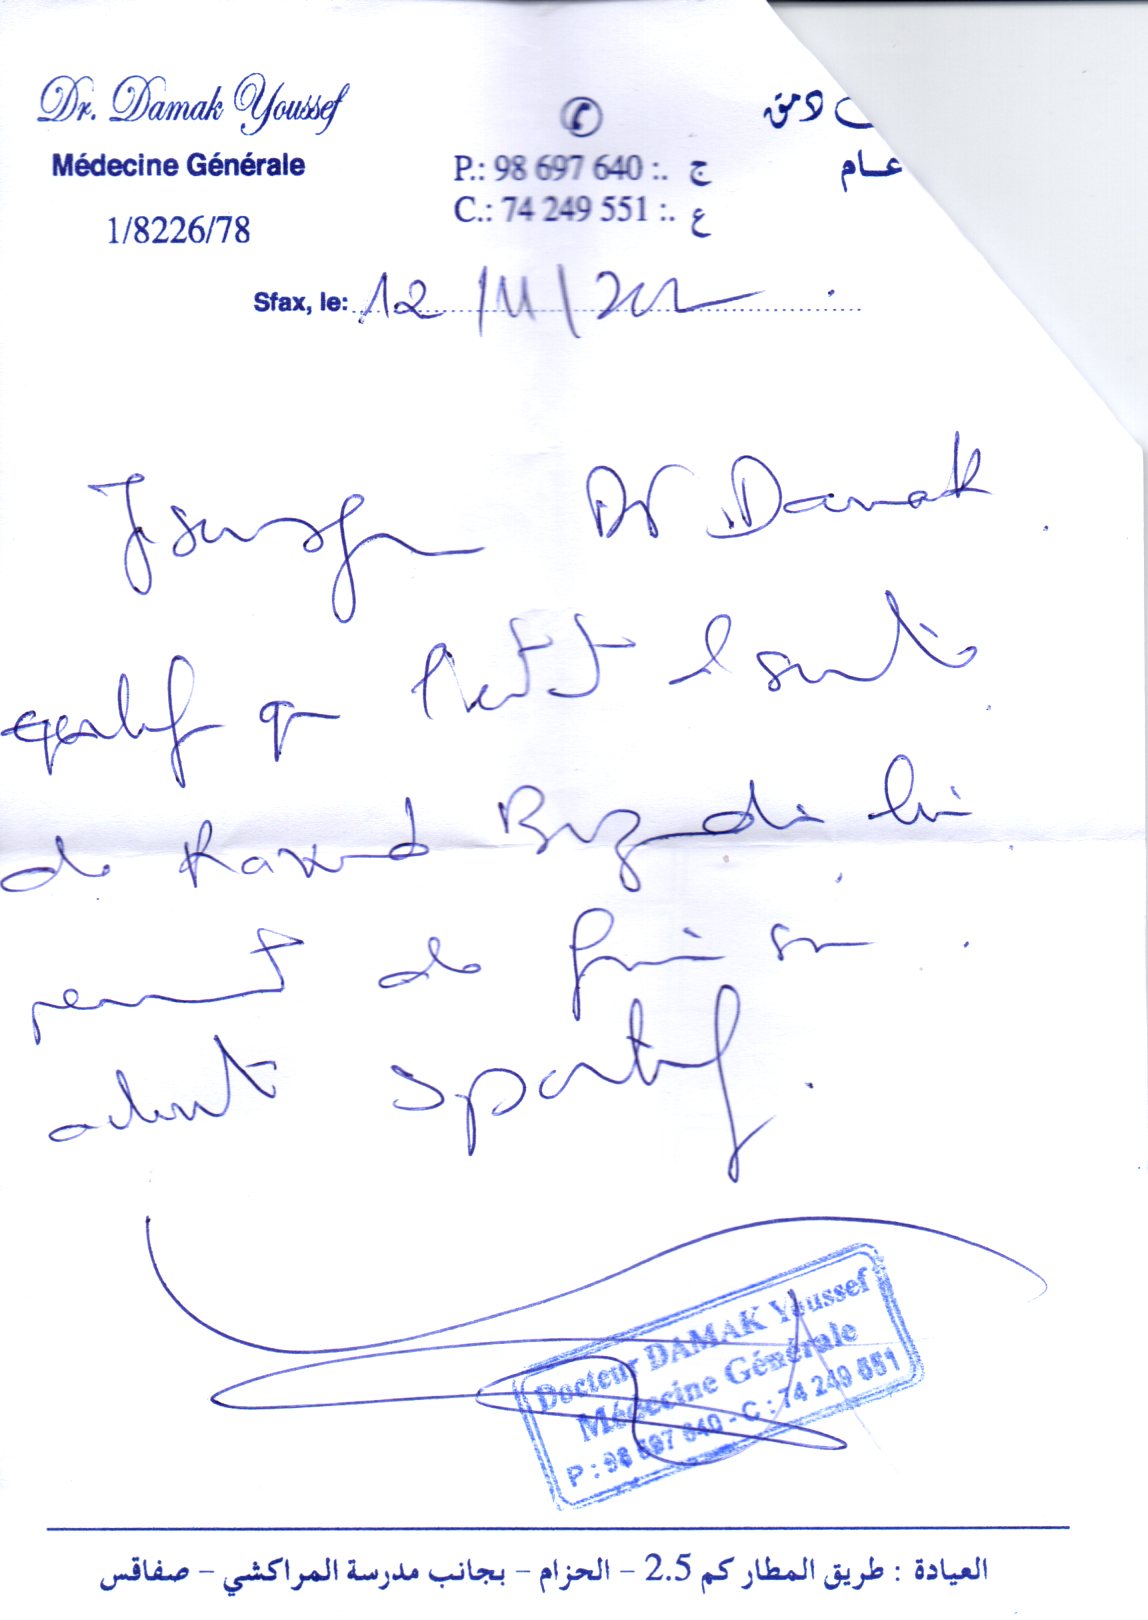 Dr. Damak Youssef
Médecine Générale
1/8226/78
P.: 98 697 640 :. ج
C.: 74 249 551 :. ع
دمق
عام
Sfax, le: 12/11/202
Dr Damak
que l'état santé
de Bizid lui
permet de faire son
sportif.
Docteur DAMAK Youssef
Médecine Générale
P : 98 697 640 - C : 74 249 551
العيادة : طريق المطار كم 2.5 - الحزام - بجانب مدرسة المراكشي - صفاقس